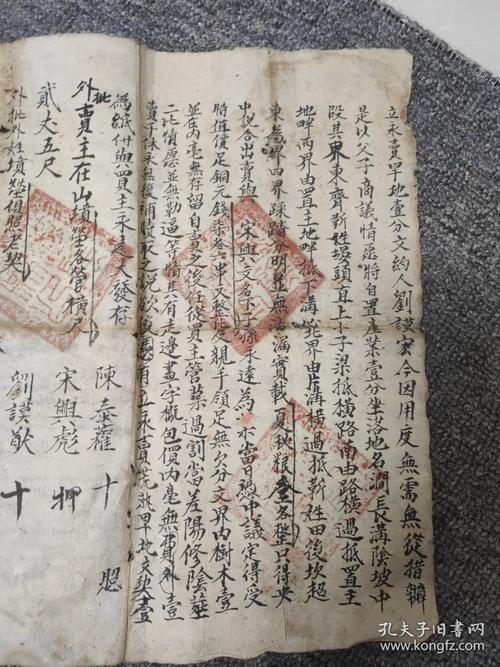 立永賣旱地壹分文約人劉謨宏今因用度無需無從措辦
是以父子商議情愿將自置產業壹分坐落地名澗長溝陰坡中
段其界東齊靳姓墳頭直上小子梁抵橫路南由路橫過抵置主
地畔西界由置主地畔抵下溝北界由溝橫過抵靳姓田後坎起
東為界四界踩踏分明並無滲漏實載夏秋粮各整只得央
中說合出賣與宋興文名下子孫永遠為業當日憑中議定得受
時值價足銅元錢柒百六十又整比交親手領足無欠分文界內樹木壹
並在內毫無存留自賣之後任從買主管業過割當差陽修陰葬
二比情愿並無勒逼等情其有走邊畫字概包價內毫無費外壹
賣下休永無後補取之說欲後憑有立永賣荒熟旱地文契壹
為紙付與買主永遠大發存
外批賣主在山墳塋各管橫尺
貳丈五尺
外批外姓墳塋俱照老契
陳泰 十 照
宋興彪 押
劉謨 十
孔夫子旧书网
www.kongfz.com